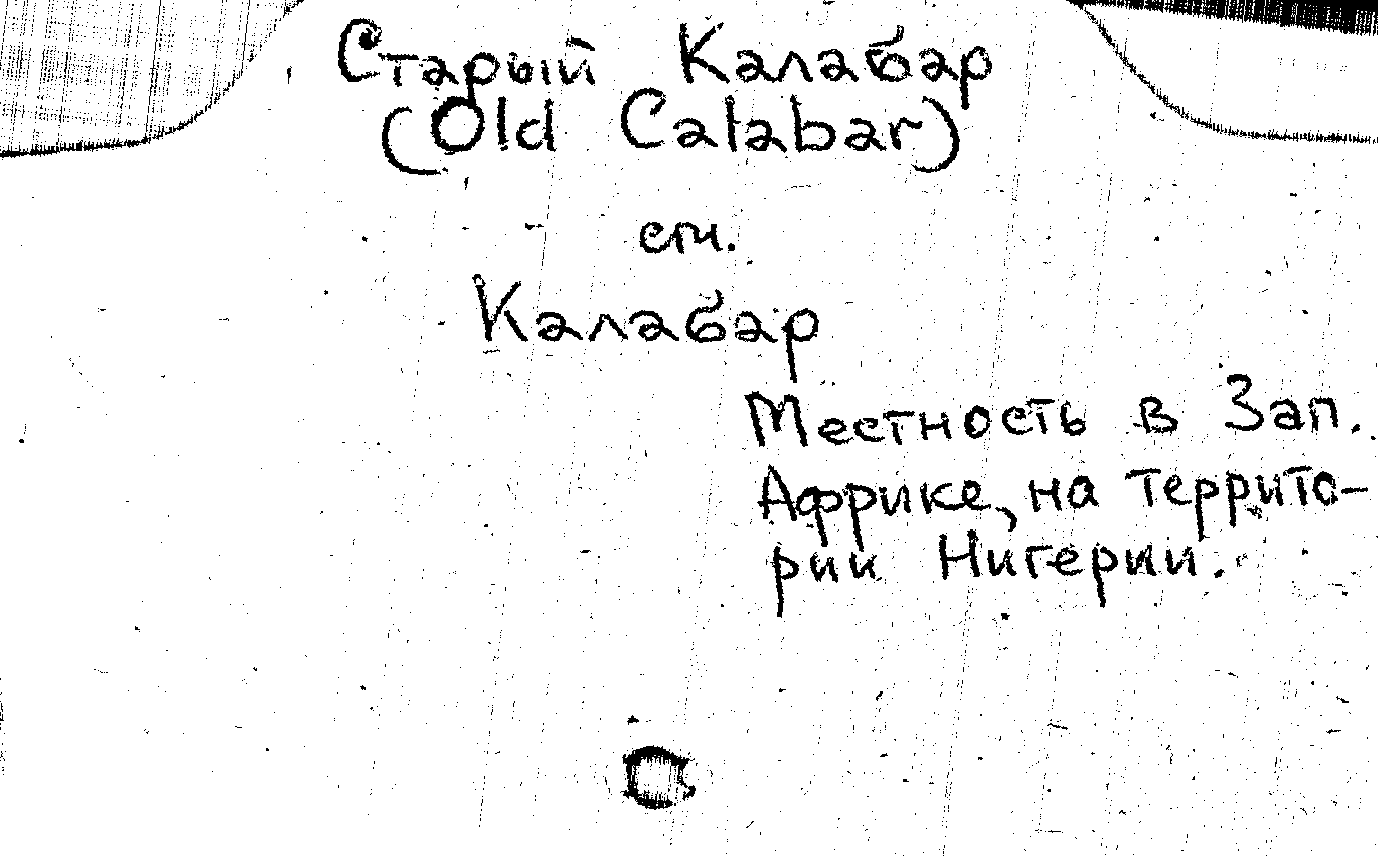 Старый Калабар
(Old Calabar)
см.
Калабар
Местность в Зап.
Африке, на террито-
рии Нигерии.